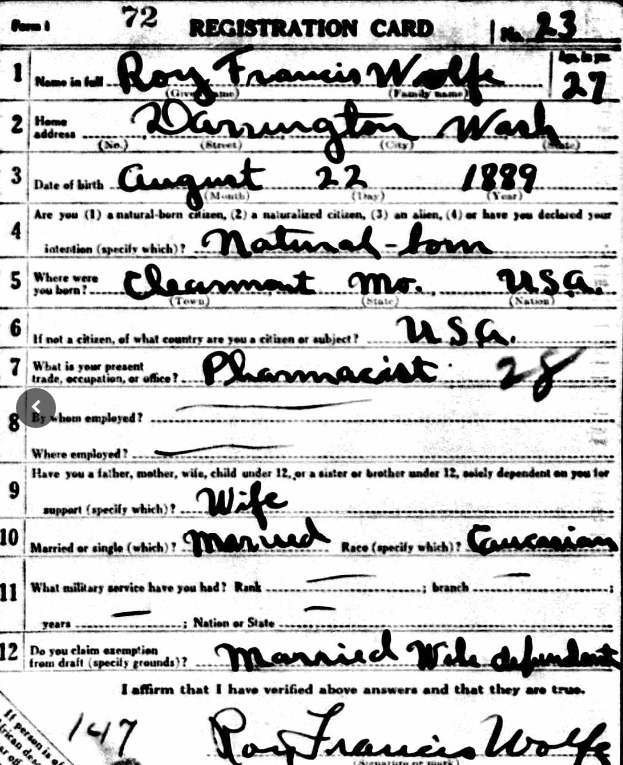 Form 1 72 REGISTRATION CARD No. 23
1 Name in full Roy Francis Wolfe Age, in yrs. 27
(Given name) (Family name)
2 Home address Darrington Wash
(No.) (Street) (City) (State)
3 Date of birth August 22 1889
(Month) (Day) (Year)
4 Are you (1) a natural-born citizen, (2) a naturalized citizen, (3) an alien, (4) or have you declared your
intention (specify which)? Natural-born
5 Where were you born? Clearmont Mo. USA.
(Town) (State) (Nation)
6 If not a citizen, of what country are you a citizen or subject? USA.
7 What is your present trade, occupation, or office? Pharmacist 28
8 By whom employed?
Where employed?
9 Have you a father, mother, wife, child under 12, or a sister or brother under 12, solely dependent on you for
support (specify which)? Wife
10 Married or single (which)? Married Race (specify which)? Caucasian
11 What military service have you had? Rank ; branch ;
years ; Nation or State
12 Do you claim exemption from draft (specify grounds)? Married Wife dependant
I affirm that I have verified above answers and that they are true.
If person is of
African
147 Roy Francis Wolfe
(Signature or mark)